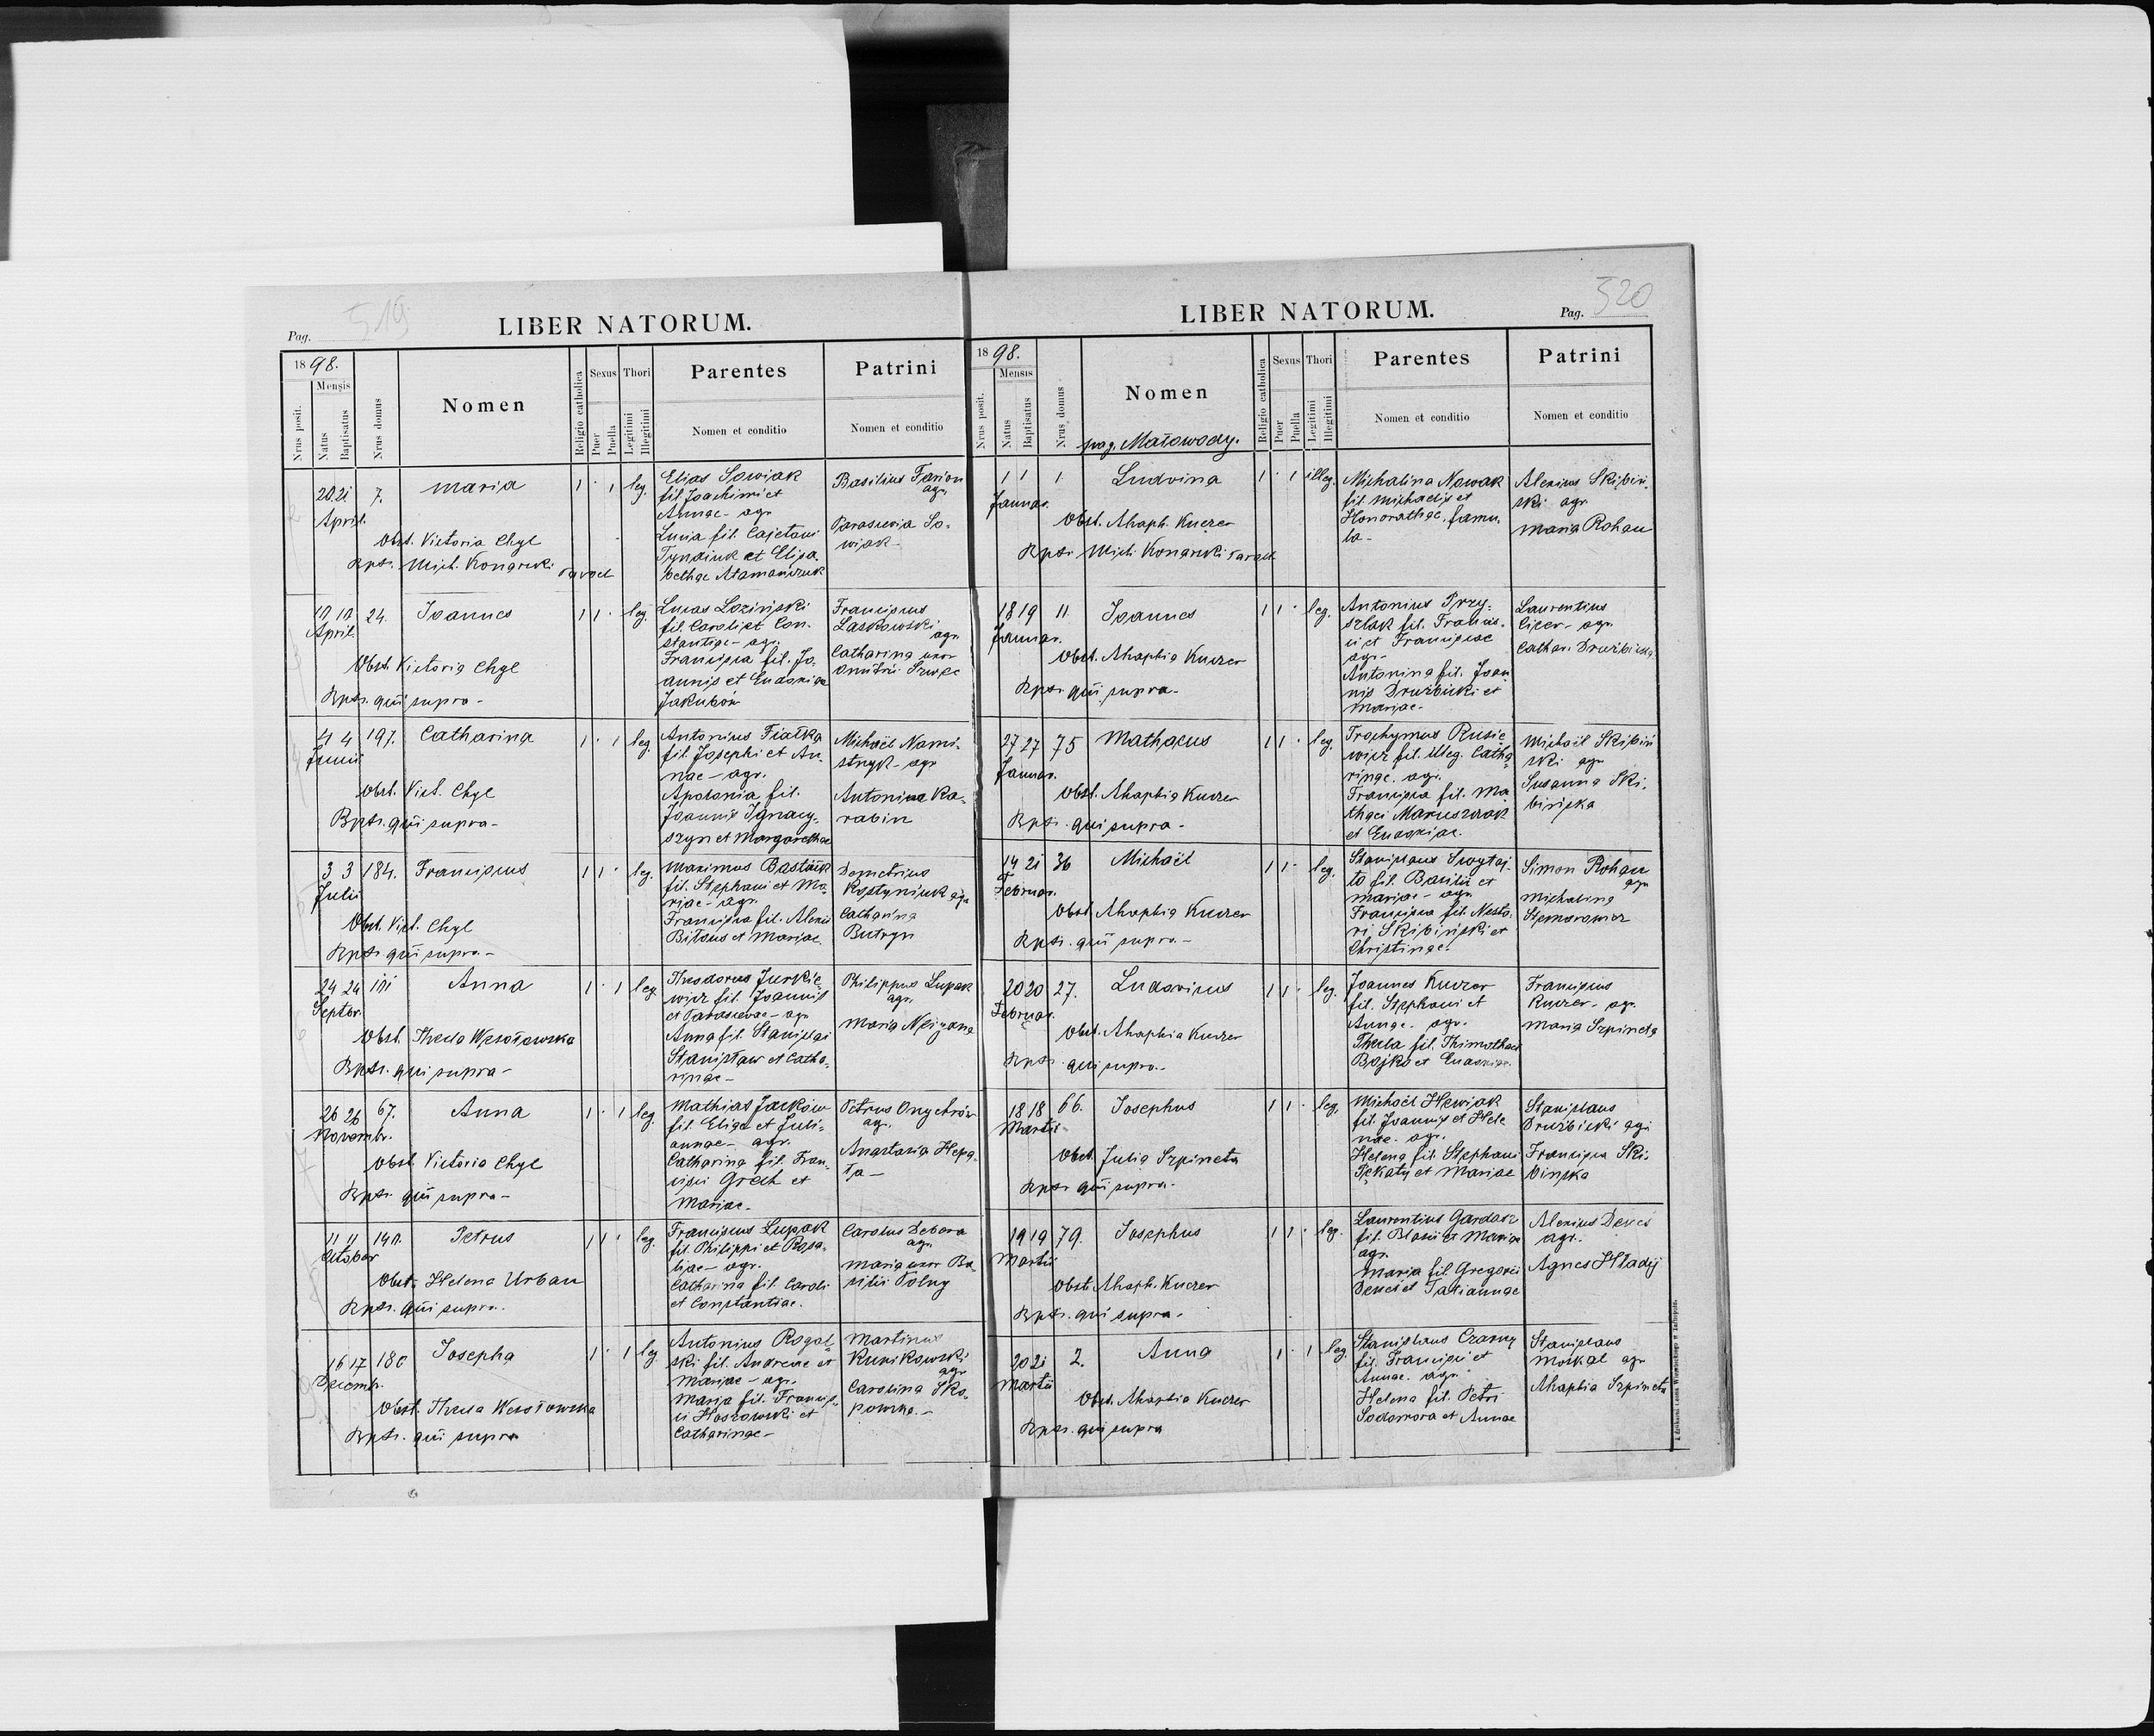 Pag. 519
LIBER NATORUM.
1898.
Mensis
Nrus posit.
Natus
Baptisatus
Nrus domus
Nomen
Religio catholica
Sexus
Puer
Puella
Thori
Legitimi
Illegitimi
Parentes
Nomen et conditio
Patrini
Nomen et conditio
20 21 7. Maria 1 · 1 leg.
April.
Obst. Victoria Chyl
Bpts. Mich. Konarski Paroch
Elias Sowiak
fil. Joachimi et
Annae - agr.
Lucia fil. Cajetani
Tyndiuk et Elisa-
bethae Atamańczuk
Basilius Farion
agr.
Parascevia So-
wiak -
10 10 24. Joannes 1 1 · leg.
April.
Obst. Victoria Chyl
Bpts. qui supra -
Lucas Loziński
fil. Caroli et Con-
stantiae - agr.
Francisca fil. Jo-
annis et Eudoxiae
Jakubów
Franciscus
Laskowski
agr.
Catharina uxor
Dmitrii
4 4 197. Catharina 1 · 1 leg.
Junii
Obst. Vict. Chyl
Bpts. qui supra -
Antonius Fiałka
fil. Josephi et An-
nae - agr.
Apolonia fil.
Joannis Ignacy-
szyn et Margarethae
Michaël Nami-
stnyk - agr.
Antonina Ka-
rabin
3 3 184. Franciscus 1 1 · leg.
Julii
Obst. Vict. Chyl
Bpts. qui supra -
Maximus Bastaik
fil. Stephani et Ma-
riae - agr.
Francisca fil. Alexii
Bilous et Mariae.
Demetrius
Kostyniuk agr.
Catharina
Butryn
24 24 101 Anna 1 · 1 leg.
Septbr.
Obst. Thecla Wesołowska
Bpts. qui supra -
Theodorus Jurkie-
wicz fil. Joannis
et Parascevae - agr.
Anna fil. Stanislai
Stanisław et Catha-
rinae -
Philippus Lupak
agr.
Maria
26 26 67. Anna 1 · 1 leg.
Novembr.
Obst. Victoria Chyl
Bpts. qui supra -
Mathias Jacków
fil. Eliae et Juli-
annae - agr.
Catharina fil. Fran-
cisci Grech et
Mariae.
Petrus Onychrów
agr.
Anastasia Hepa-
ta -
11 11 140. Petrus 1 1 · leg.
October
Obst. Helena Urban
Bpts. qui supra.
Franciscus Lupak
fil. Philippi et Rosa-
liae - agr.
Catharina fil. Caroli
et Constantiae.
Carolus Debera
agr.
Maria uxor Ba-
silii Polny
16 17 186 Josepha 1 · 1 leg
Decembr.
Obst. Thecla Wesołowska
Bpts. qui supra
Antonius Rogal-
ski fil. Andreae et
Mariae - agr.
Maria fil. Francis-
ci Hoszowski et
Catharinae -
Martinus
Kunikowski
agr.
Carolina Sko-
powska. -
LIBER NATORUM.
Pag. 520
1898.
Mensis
Nrus posit.
Natus
Baptisatus
Nrus domus
Nomen
pag. Małowody.
Religio catholica
Sexus
Puer
Puella
Thori
Legitimi
Illegitimi
Parentes
Nomen et conditio
Patrini
Nomen et conditio
1 1 1 Ludvina 1 · 1 illeg.
Januar.
Obst. Ahaph. Kuczer
Bpts. Mich. Konarski Paroch.
Michalina Nowak
fil. Michaelis et
Honorathae, famu-
la -
Alexius Skibiń-
ski agr.
Maria Rohan
18 19 11 Joannes 1 1 · leg.
Januar.
Obst. Ahaphia Kuczer
Bpts. qui supra -
Antonius Przy-
szlak fil. Francis-
ci et Franciscae
agr. -
Antonina fil. Joan
nis Drużbicki et
Mariae -
Laurentius
Cicer - agr.
Cathar. Drużbicka
27 27 75 Mathaeus 1 1 · leg.
Januar.
Obst. Ahaphia Kuczer
Bpts. qui supra -
Trochymus Rusie-
wicz fil. illeg. Catha-
rinae - agr.
Francisca fil. Ma-
thaei Maruszczak
et Eudoxiae.
Michaël Skibiń
ski agr
Susanna Ski-
bińska
14 21 36 Michaël 1 1 · leg.
Februar.
Obst. Ahaphia Kuczer
Bpts. qui supra. -
Stanislaus Swytaj-
ło fil. Basilii et
Mariae - agr.
Francisca fil. Nesto-
ri Skibiński et
Christinae.
Simon Rohan
agr
Michalina
20 20 27. Ludovicus 1 1 · leg.
Februar.
Obst. Ahaphia Kuczer
Bpts. qui supra. -
Joannes Kuczer
fil. Stephani et
Annae - agr.
Thecla fil. Thimothaei
Bojko et Eudoxiae.
Franciscus
Kuczer - agr.
Maria Szpineta
18 18 66. Josephus 1 1 · leg.
Martii
Obst. Julia Szpineta
Bpts. qui supra -
Michaël Hewiak
fil. Joannis et Hele
nae - agr.
Helena fil. Stephani
Pękaty et Mariae
Stanislaus
Drużbicki agr
Francisca Ski-
bińska
19 19 79. Josephus 1 1 · leg.
Martii
Obst. Ahaph. Kuczer
Bpts. qui supra -
Laurentius Gardasz
fil. Blasii et Mariae
agr.
Maria fil. Gregorii
Denes et Tatiannae
Alexius Denes
agr.
Agnes Hładij
20 21 2. Anna 1 · 1 leg.
Martii
Obst. Ahaphia Kuczer
Bpts. qui supra
Stanislaus Czarny
fil. Francisci et
Annae - agr.
Helena fil. Petri
Sodomora et Annae
Stanislaus
Moskal agr
Ahaphia Szpineta